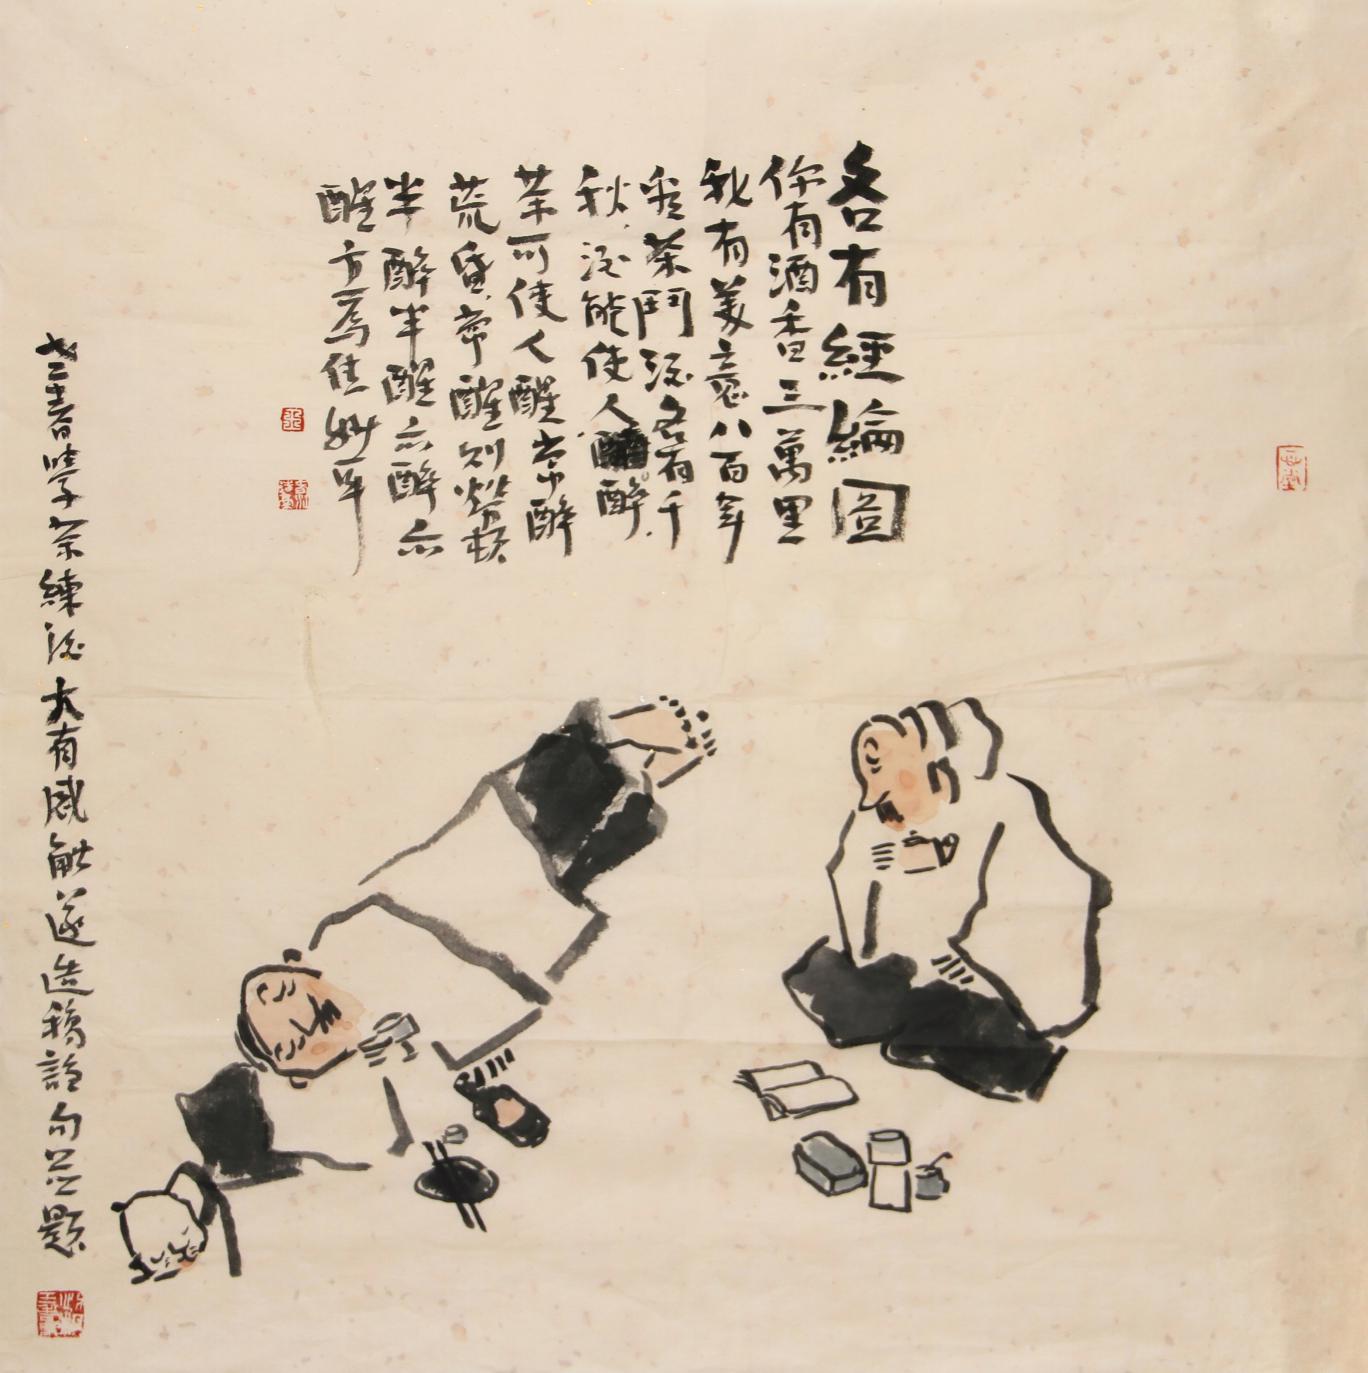 各有經綸圖
你有酒香三萬里
我有美意八百年
我茶鬥酒各有千
秋酒能使人醉
茶可使人醒常醉
荒昏常醒則勞頓
半醉半醒亦醉亦
醒方爲佳妙耳
喜學茶練酒大有感觸遂造稿謅句并題